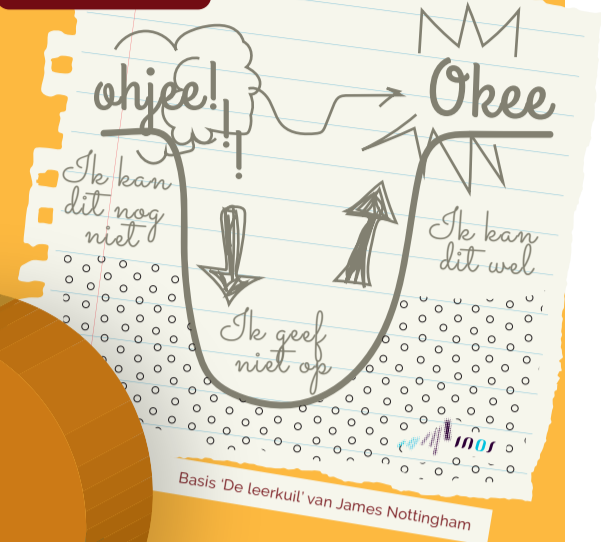 ohjee!!!
Okee
Ik kan
dit nog
niet
Ik kan
dit wel
Ik geef
niet op
Basis 'De leerkuil' van James Nottingham